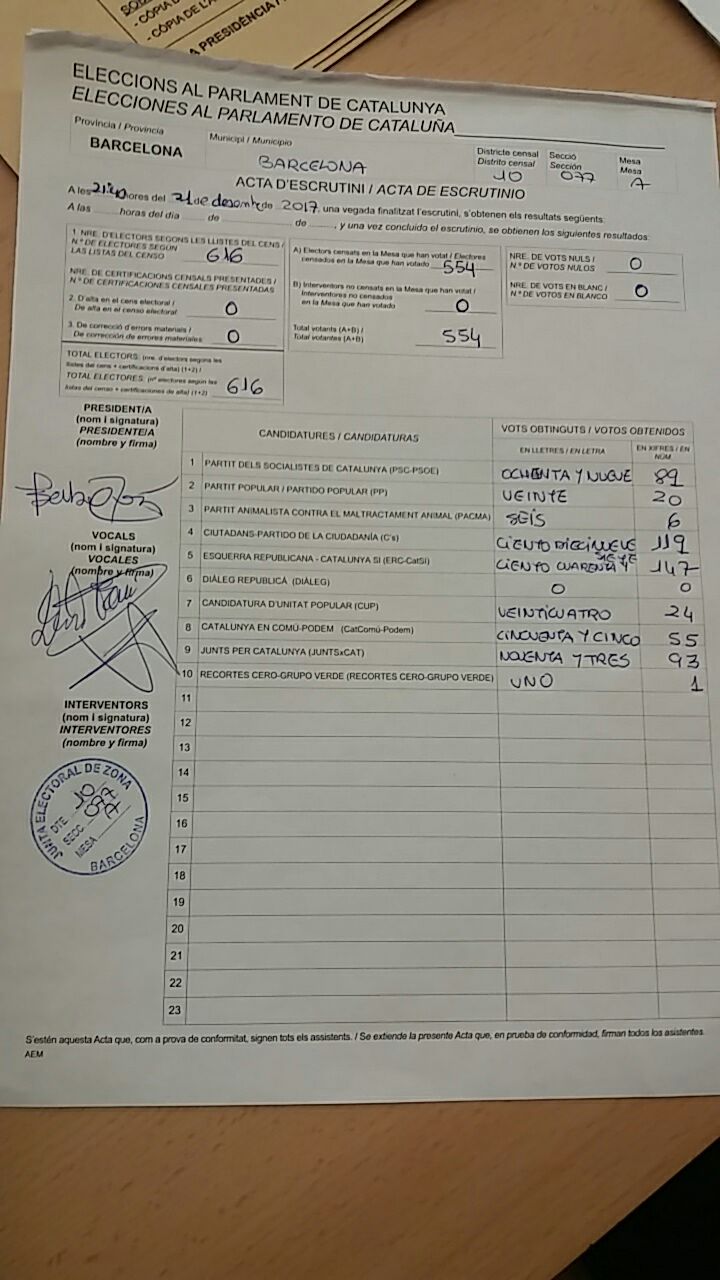 SOB
- CÒPIA D
- CÒPIA DE L'A
A PRESIDÈNCIA /
ELECCIONS AL PARLAMENT DE CATALUNYA
ELECCIONES AL PARLAMENTO DE CATALUÑA
Província / Provincia
BARCELONA
Municipi / Municipio
BARCELONA
Districte censal
Distrito censal
10
Secció
Sección
077
Mesa
Mesa
A
ACTA D'ESCRUTINI / ACTA DE ESCRUTINIO
A les 21:40 hores del 21 de desembre de 2017, una vegada finalitzat l'escrutini, s'obtenen els resultats següents:
A las ........ horas del día ........ de ........ de ........, y una vez concluido el escrutinio, se obtienen los siguientes resultados:
1. NRE. D'ELECTORS SEGONS LES LLISTES DEL CENS /
N.º DE ELECTORES SEGÚN
LAS LISTAS DEL CENSO
616
NRE. DE CERTIFICACIONS CENSALS PRESENTADES /
N.º DE CERTIFICACIONES CENSALES PRESENTADAS
2. D'alta en el cens electoral /
De alta en el censo electoral
0
3. De correcció d'errors materials /
De corrección de errores materiales
0
TOTAL ELECTORS: (nre. d'electors segons les
llistes del cens + certificacions d'alta) (1+2) /
TOTAL ELECTORES: (nº electores según las
listas del censo + certificaciones de alta) (1+2)
616
A) Electors censats en la Mesa que han votat / Electores
censados en la Mesa que han votado
554
B) Interventors no censats en la Mesa que han votat /
Interventores no censados
en la Mesa que han votado
0
Total votants (A+B) /
Total votantes (A+B)
554
NRE. DE VOTS NULS /
N.º DE VOTOS NULOS
0
NRE. DE VOTS EN BLANC /
N.º DE VOTOS EN BLANCO
0
PRESIDENT/A
(nom i signatura)
PRESIDENTE/A
(nombre y firma)
VOCALS
(nom i signatura)
VOCALES
(nombre y firma)
INTERVENTORS
(nom i signatura)
INTERVENTORES
(nombre y firma)
JUNTA ELECTORAL DE ZONA
DTE. 10
SECC. 077
MESA A
BARCELONA
CANDIDATURES / CANDIDATURAS
VOTS OBTINGUTS / VOTOS OBTENIDOS
EN LLETRES / EN LETRA
EN XIFRES / EN NÚM.
1 PARTIT DELS SOCIALISTES DE CATALUNYA (PSC-PSOE) OCHENTA Y NUEVE 89
2 PARTIT POPULAR / PARTIDO POPULAR (PP) VEINTE 20
3 PARTIT ANIMALISTA CONTRA EL MALTRACTAMENT ANIMAL (PACMA) SEÍS 6
4 CIUTADANS-PARTIDO DE LA CIUDADANÍA (C's) CIENTO DIECINUEVE 119
5 ESQUERRA REPUBLICANA - CATALUNYA SÍ (ERC-CatSÍ) CIENTO CUARENTA Y SIETE 147
6 DIÀLEG REPUBLICÀ (DIÀLEG) 0 0
7 CANDIDATURA D'UNITAT POPULAR (CUP) VEINTICUATRO 24
8 CATALUNYA EN COMÚ-PODEM (CatComú-Podem) CINCUENTA Y CINCO 55
9 JUNTS PER CATALUNYA (JUNTSxCAT) NOVENTA Y TRES 93
10 RECORTES CERO-GRUPO VERDE (RECORTES CERO-GRUPO VERDE) UNO 1
11
12
13
14
15
16
17
18
19
20
21
22
23
S'estén aquesta Acta que, com a prova de conformitat, signen tots els assistents. / Se extiende la presente Acta que, en prueba de conformidad, firman todos los asistentes.
AEM